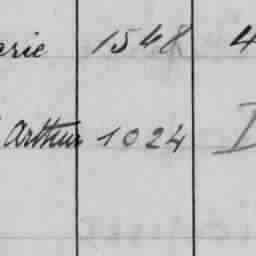 arie 1548 4
Arthur 1024 I